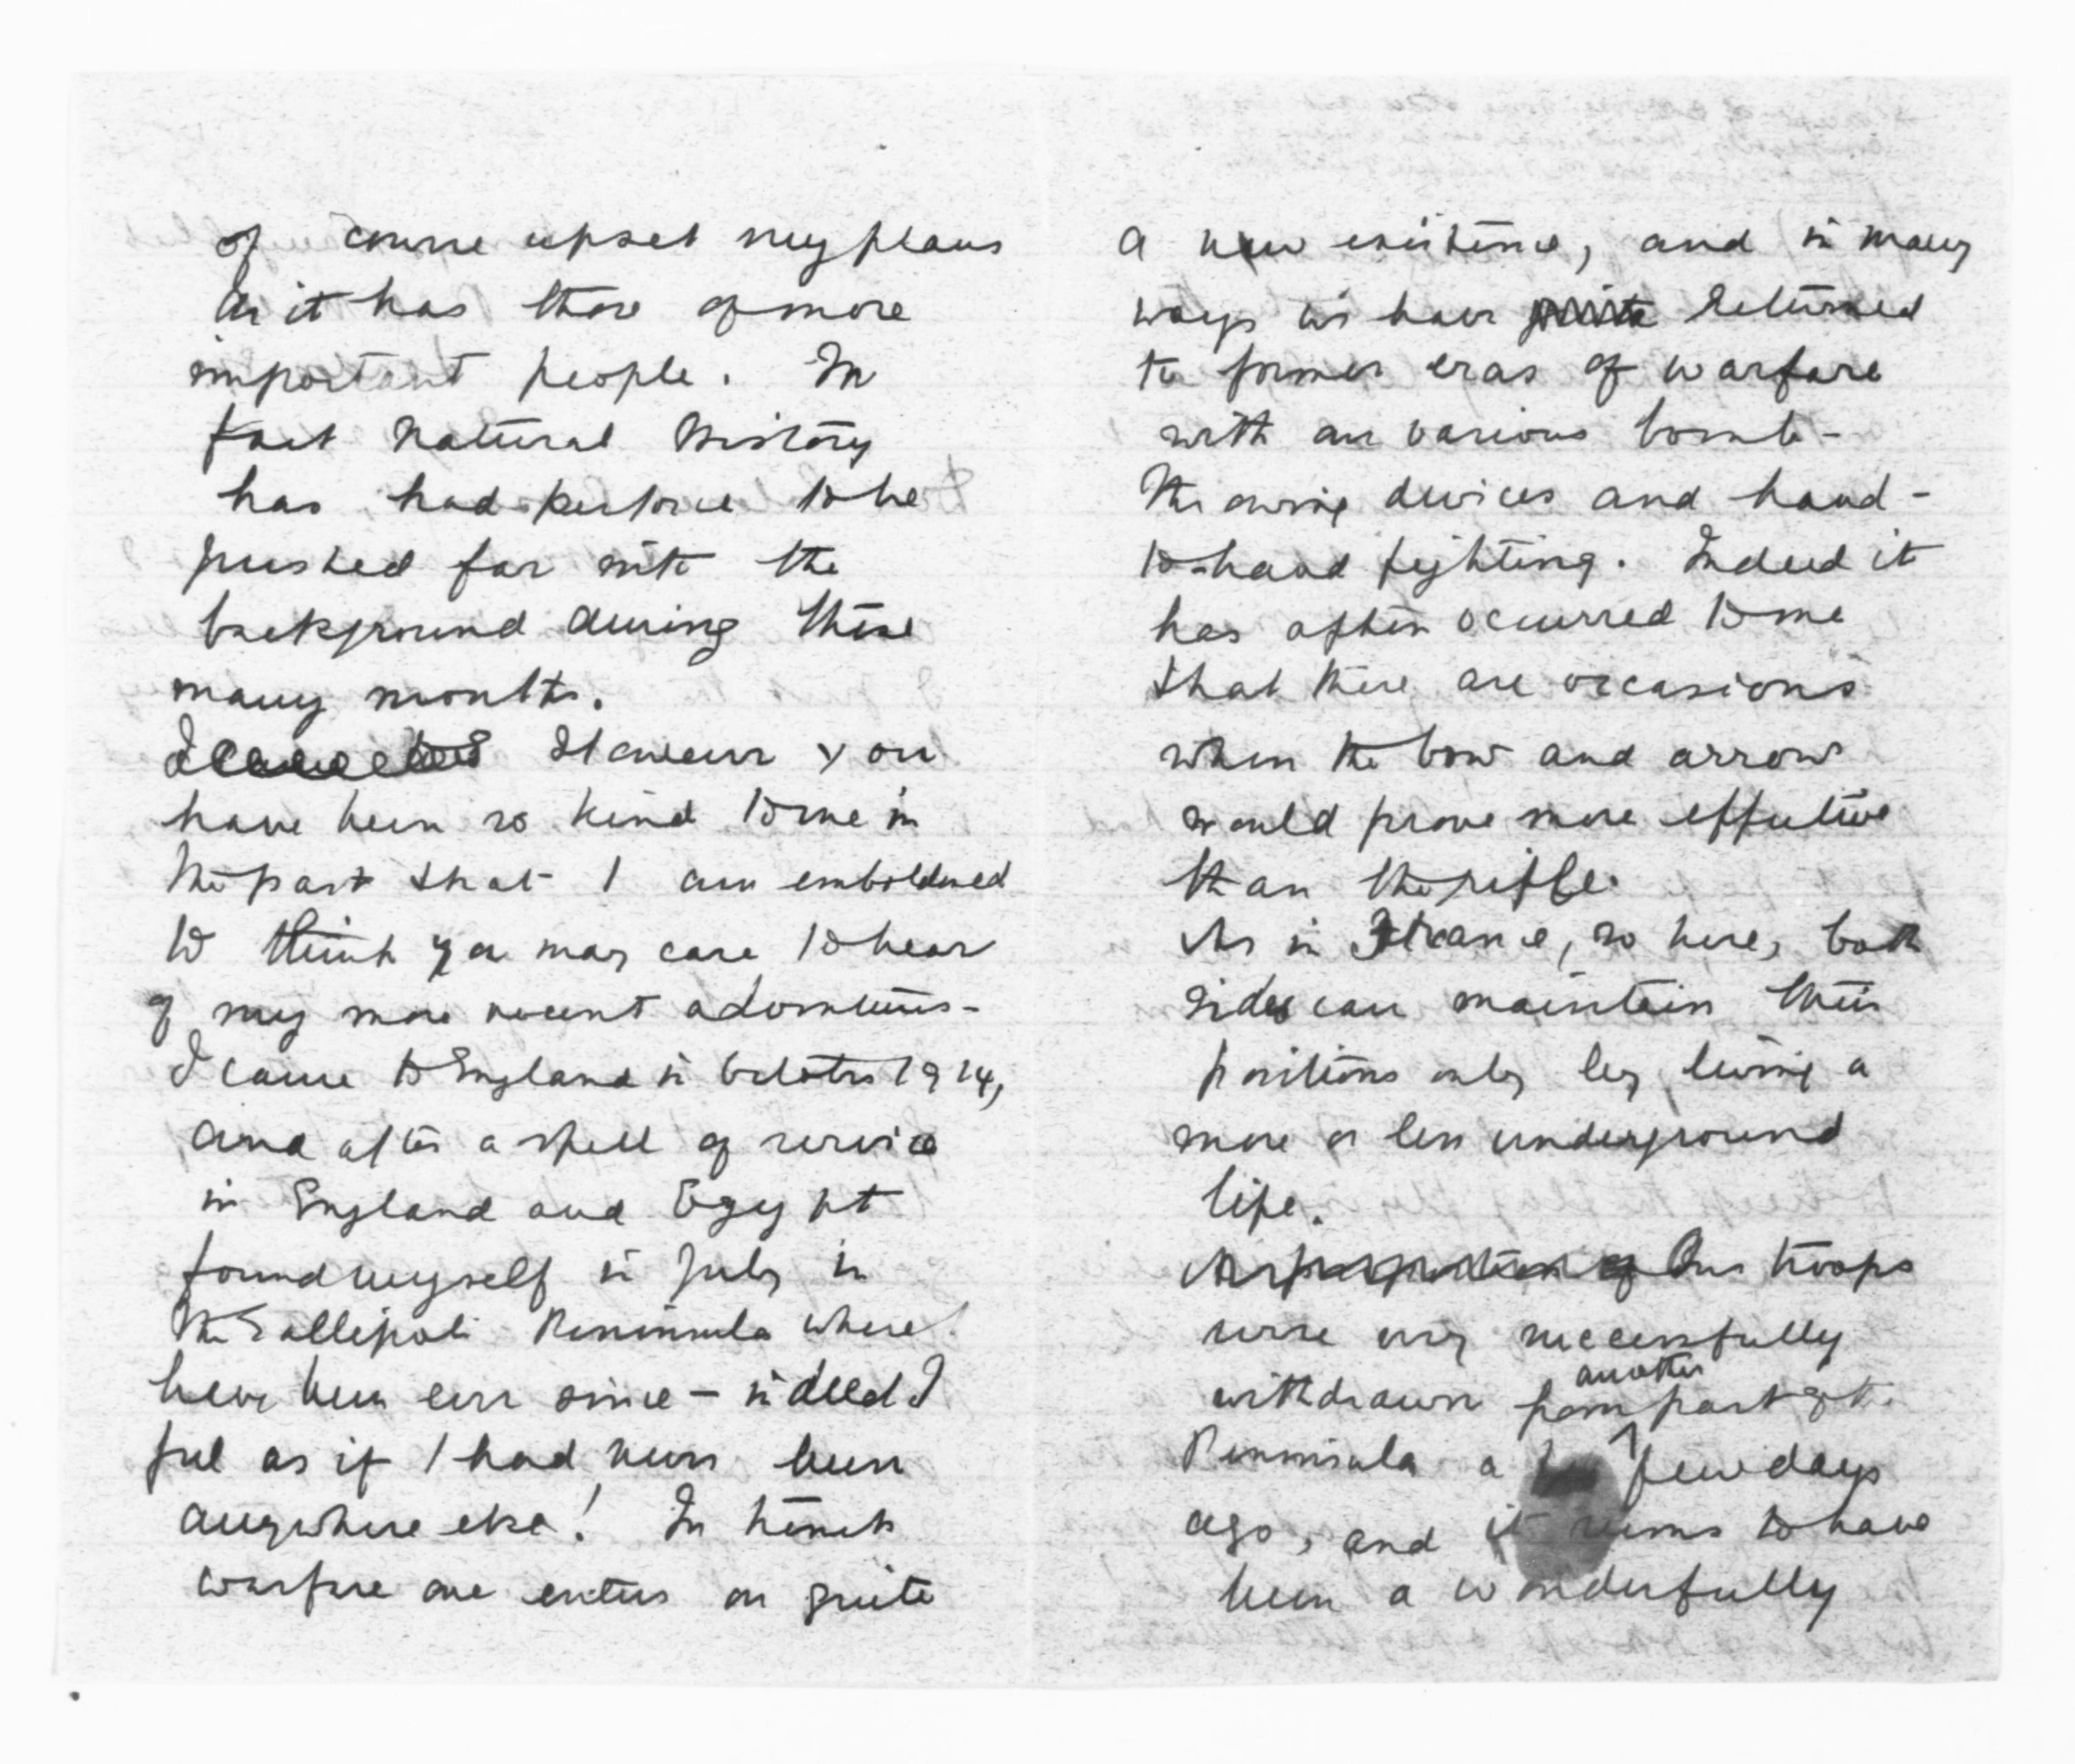 of course upset my plans
as it has those of more
important people. In
fact Natural History
has had perforce to be
pushed far into the
background during these
many months.
However you
have been so kind to me in
the past that I am emboldened
to think you may care to hear
of my more recent adventures-
I came to England in October 1914,
and after a spell of service
in England and Egypt
found myself in July in
the Gallipoli Peninsula where I
have been ever since – indeed I
feel as if I had never been
anywhere else! In trench
warfare one enters on quite
a new existence, and in many
ways we have quite returned
to former eras of warfare
with our various bomb-
throwing devices and hand-
to-hand fighting. Indeed it
has often occurred to me
that there are occasions
when the bow and arrow
would prove more effective
than the rifle.
As in France, so here, both
sides can maintain their
positions only by living a
more or less underground
life.
Our troops
were very successfully
withdrawn from another part of t.
Peninsula a few days
ago, and it seems to have
been a wonderfully